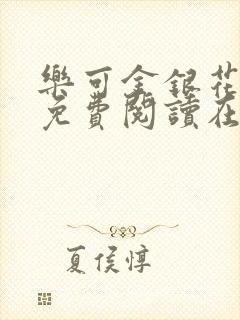 樂可金銀花
免費閱讀在
夏侯惇